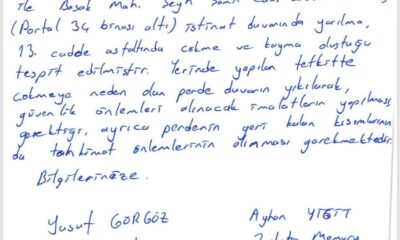 ile Başak Mah.
(Portal 34 binası altı) istinat duvarında yarılma,
13. cadde asfaltında çökme ve kayma oluştuğu
tespit edilmiştir. Yerinde yapılan tetkikte
çökmeye neden olan perde duvarın yıkılarak,
güvenlik önlemleri alınacak imalatların yapılması
gerektiği, ayrıca perdenin geri kalan kısımlarının
da tahkimat önlemlerinin alınması gerekmektedir.
Bilgilerinize.
Yusuf GÖRGÖZ Ayhan YİĞİT
Zabıta Memuru